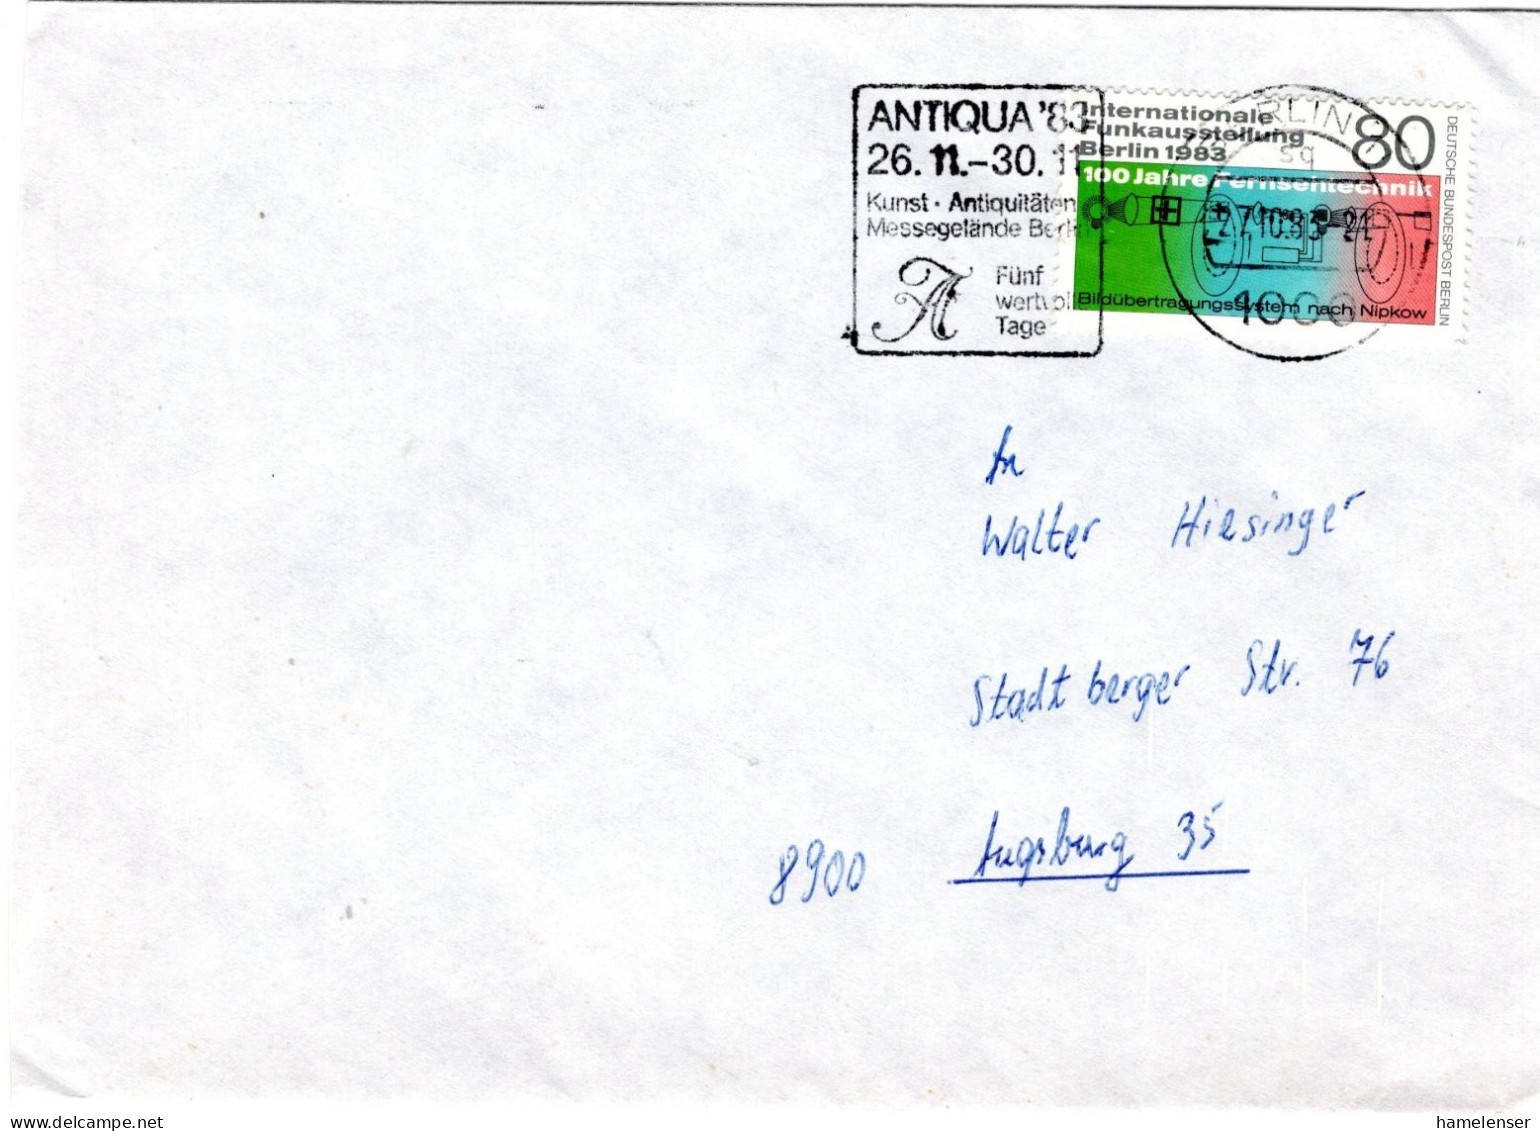 ANTIQUA '83
26. 11.–30. 11
Kunst · Antiquitäten
Messegelände Berlin
A
Fünf
wertvoll
Tage
Internationale
Funkausstellung
Berlin 1983
80
100 Jahre Fernsehtechnik
Bildübertragungssystem nach Nipkow
DEUTSCHE BUNDESPOST BERLIN
BERLIN
sq
27.10.83-21
1000
An
Walter Hiesinger
Stadtberger Str. 76
8900 Augsburg 35
delcampe.net
hamelenser